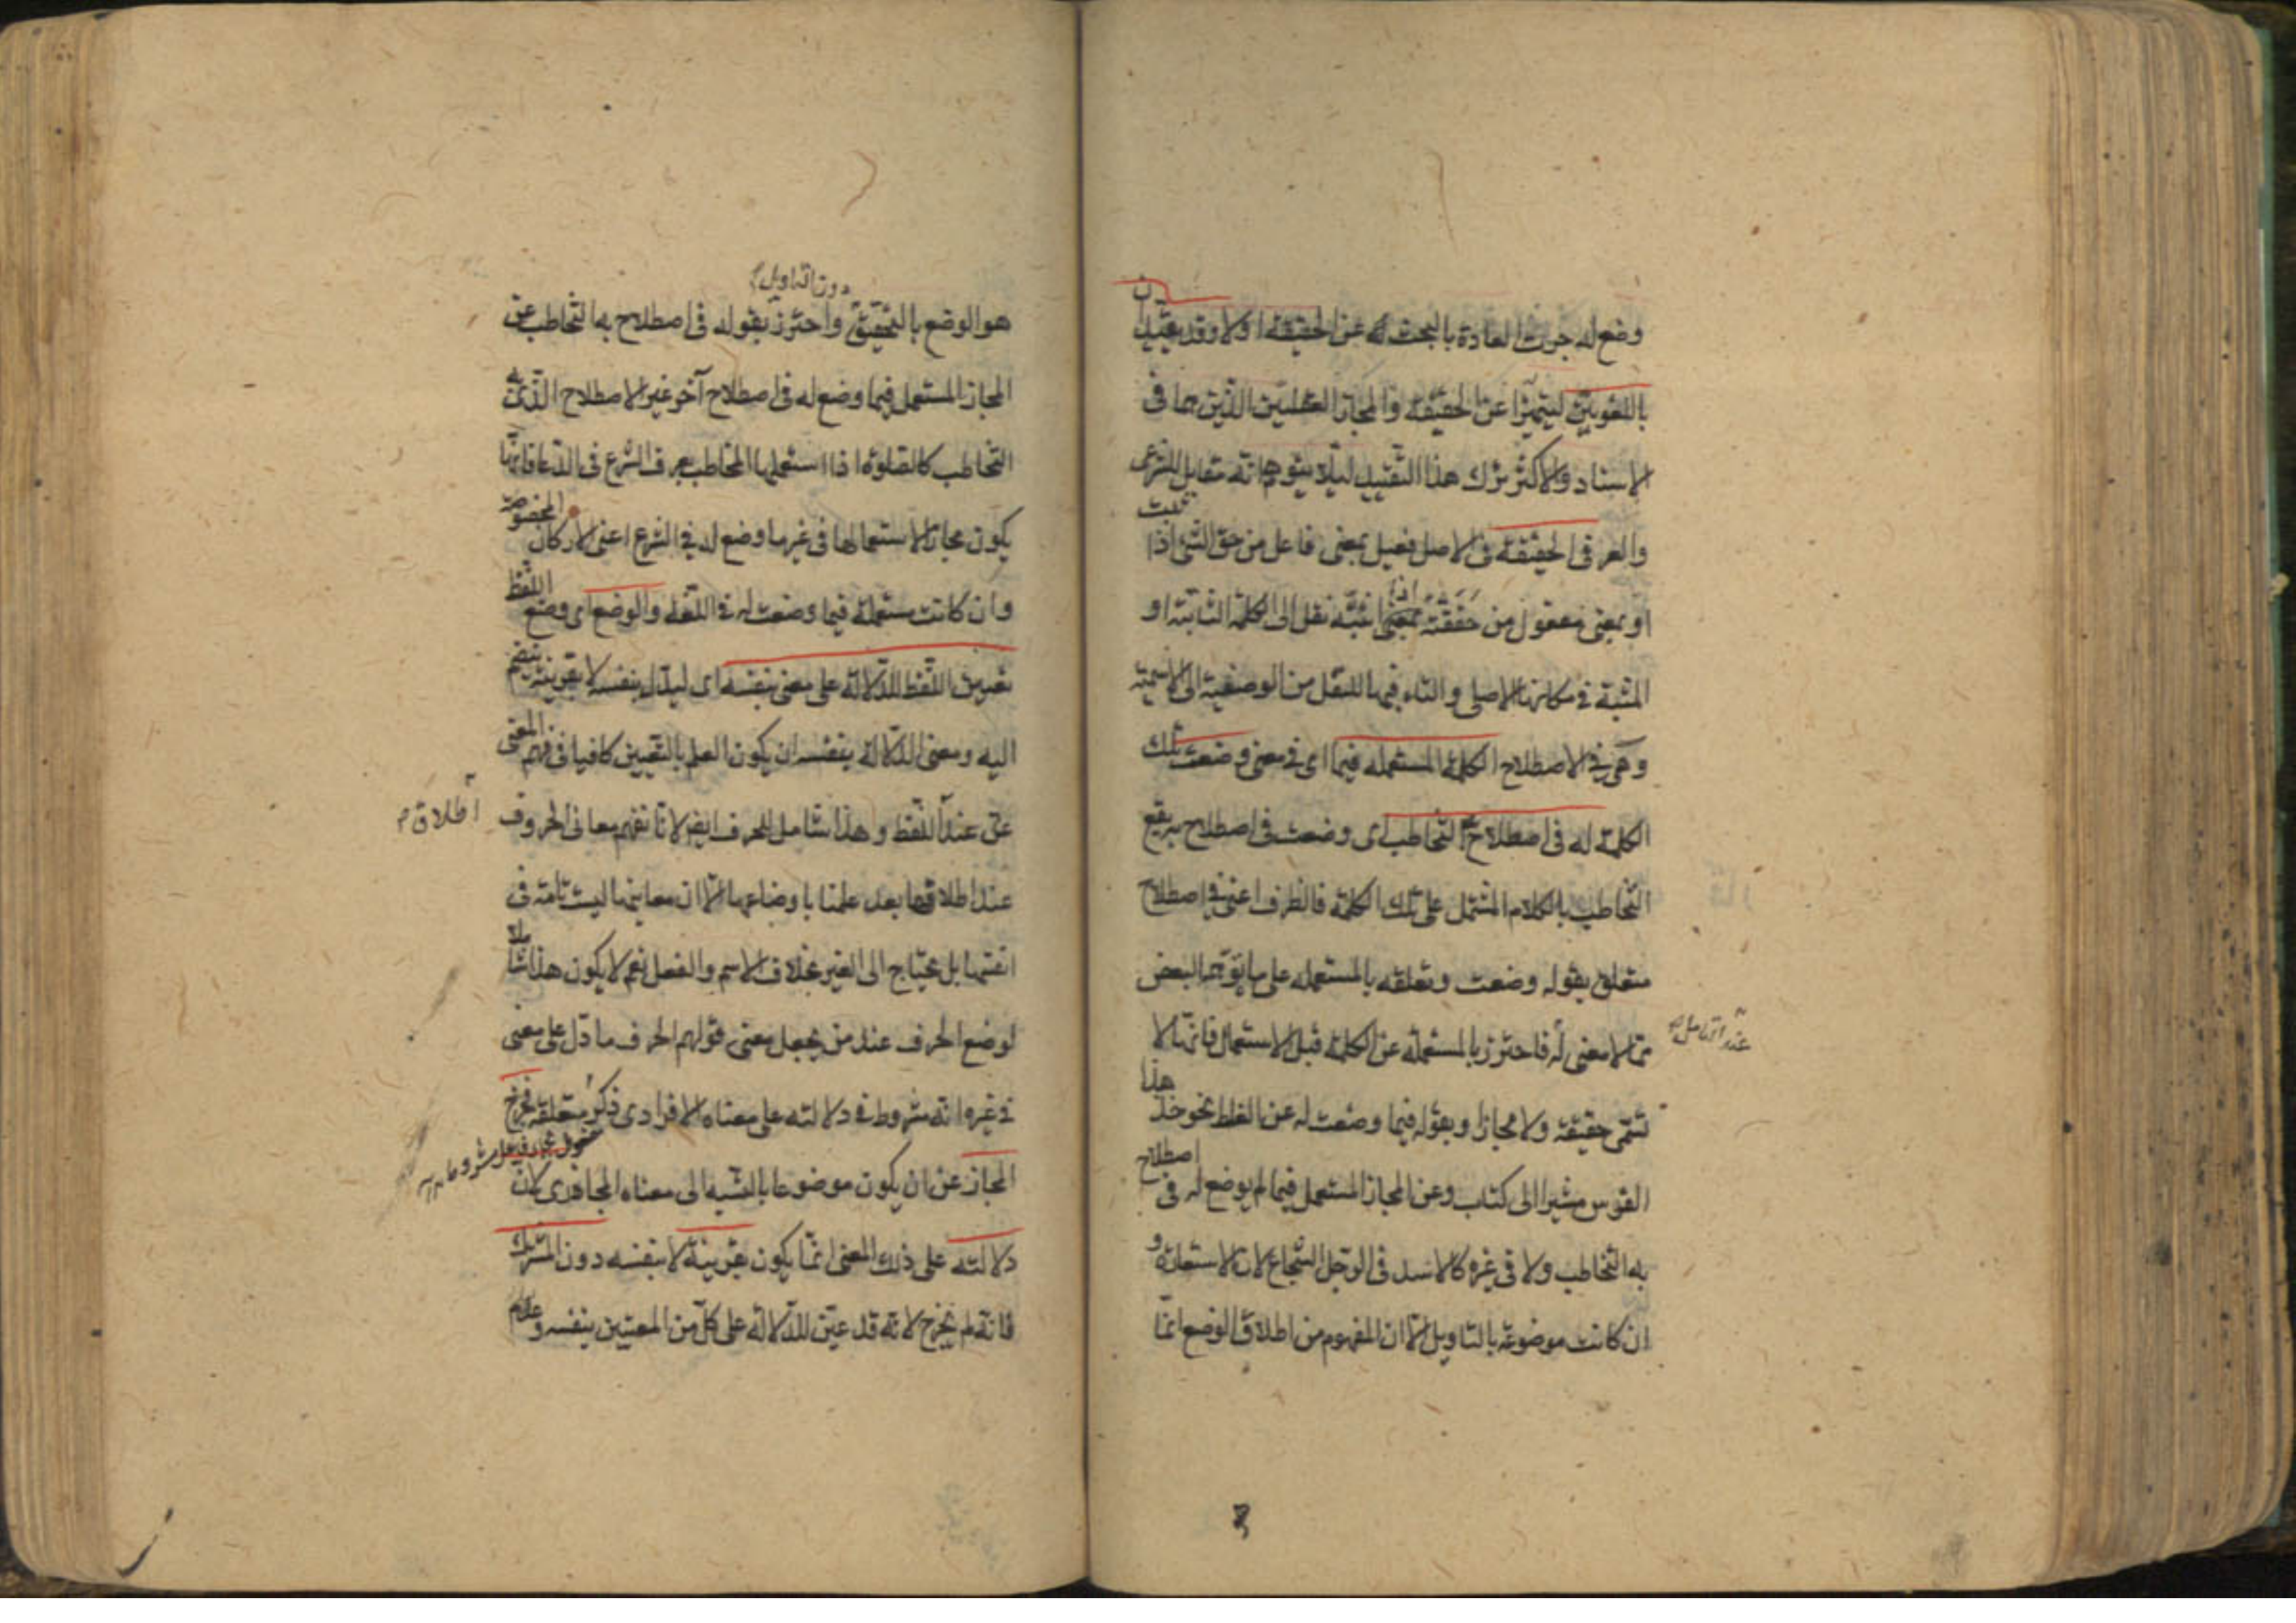 وضع له جرت العادة بالبحث له عن الحقيقة اولا وقد يقيدان
باللغويين ليتميزا عن الحقيقة والمجاز العقليين الذين هما فى
الاسناد والاكثر ترك هذا التقييد ليلا يتوهم انه مقابل للشرعى
والعرفى الحقيقة فى الاصل فعيل بمعنى فاعل من حق الشئ اذا ثبت
او بمعنى مفعول من حققته اذا اثبته نقل الى الكلمة الثابتة او
المثبتة فى مكانها الاصلى والتاء فيها للنقل من الوصفية الى الاسمية
وهى فى الاصطلاح الكلمة المستعملة فيما اى فى معنى وضعت تلك
الكلمة له فى اصطلاح به التخاطب اى وضعت فى اصطلاح به يقع
التخاطب بالكلام المشتمل على تلك الكلمة فالظرف اعنى فى اصطلاح
متعلق بقوله وضعت وتعلقه بالمستعملة على ما توهم البعض
مما لا معنى له فاحترز بالمستعملة عن الكلمة قبل الاستعمال فانها لا
عند التامل
تسمى حقيقة ولا مجازا وبقوله فيما وضعت له عن الغلط نحو خذ هذا
القوس مشيرا الى كتاب وعن المجاز المستعمل فيما لم يوضع له فى اصطلاح
به التخاطب ولا فى غيره كالاسد فى الرجل الشجاع لان الاستعارة و
ان كانت موضوعة بالتاويل الا ان المفهوم من اطلاق الوضع انما
دون التاويل
هو الوضع بالتحقيق واحترز بقوله فى اصطلاح به التخاطب عن
المجاز المستعمل فيما وضع له فى اصطلاح آخر غير الاصطلاح الذى به
التخاطب كالصلوة اذا استعملها المخاطب بعرف الشرع فى الدعا فانها
يكون مجازا لاستعمالها فى غير ما وضع له فى الشرع اعنى الاركان المخصوصة
وان كانت مستعملة فيما وضعت له فى اللغة والوضع اى وضع اللفظ
تعيين اللفظ للدلالة على معنى بنفسه اى ليدل بنفسه لا بقرينة تنضم
اليه ومعنى الدلالة بنفسه ان يكون العلم بالتعيين كافيا فى فهم المعنى
عن عند اللفظ وهذا شامل للحرف ايضا لانا نفهم معانى الحروف
اطلاق
عند اطلاقها بعد علمنا باوضاعها الا ان معانيها ليست تامة فى
انفسها بل يحتاج الى الغير بخلاف الاسم والفعل نعم لا يكون هذا شاملا
لوضع الحرف عند من يجعل معنى قولهم الحرف ما دل على معنى
فى غيره انه مشروط فى دلالته على معناه الافرادى ذكر متعلقه فخرج
المجاز عن ان يكون موضوعا بالنسبة الى معناه المجازى لان
دلالته على ذلك المعنى انما يكون بقرينة لا بنفسه دون المشترك
فانه لم يخرج لانه قد عين للدلالة على كل من المعنيين بنفسه وعدم